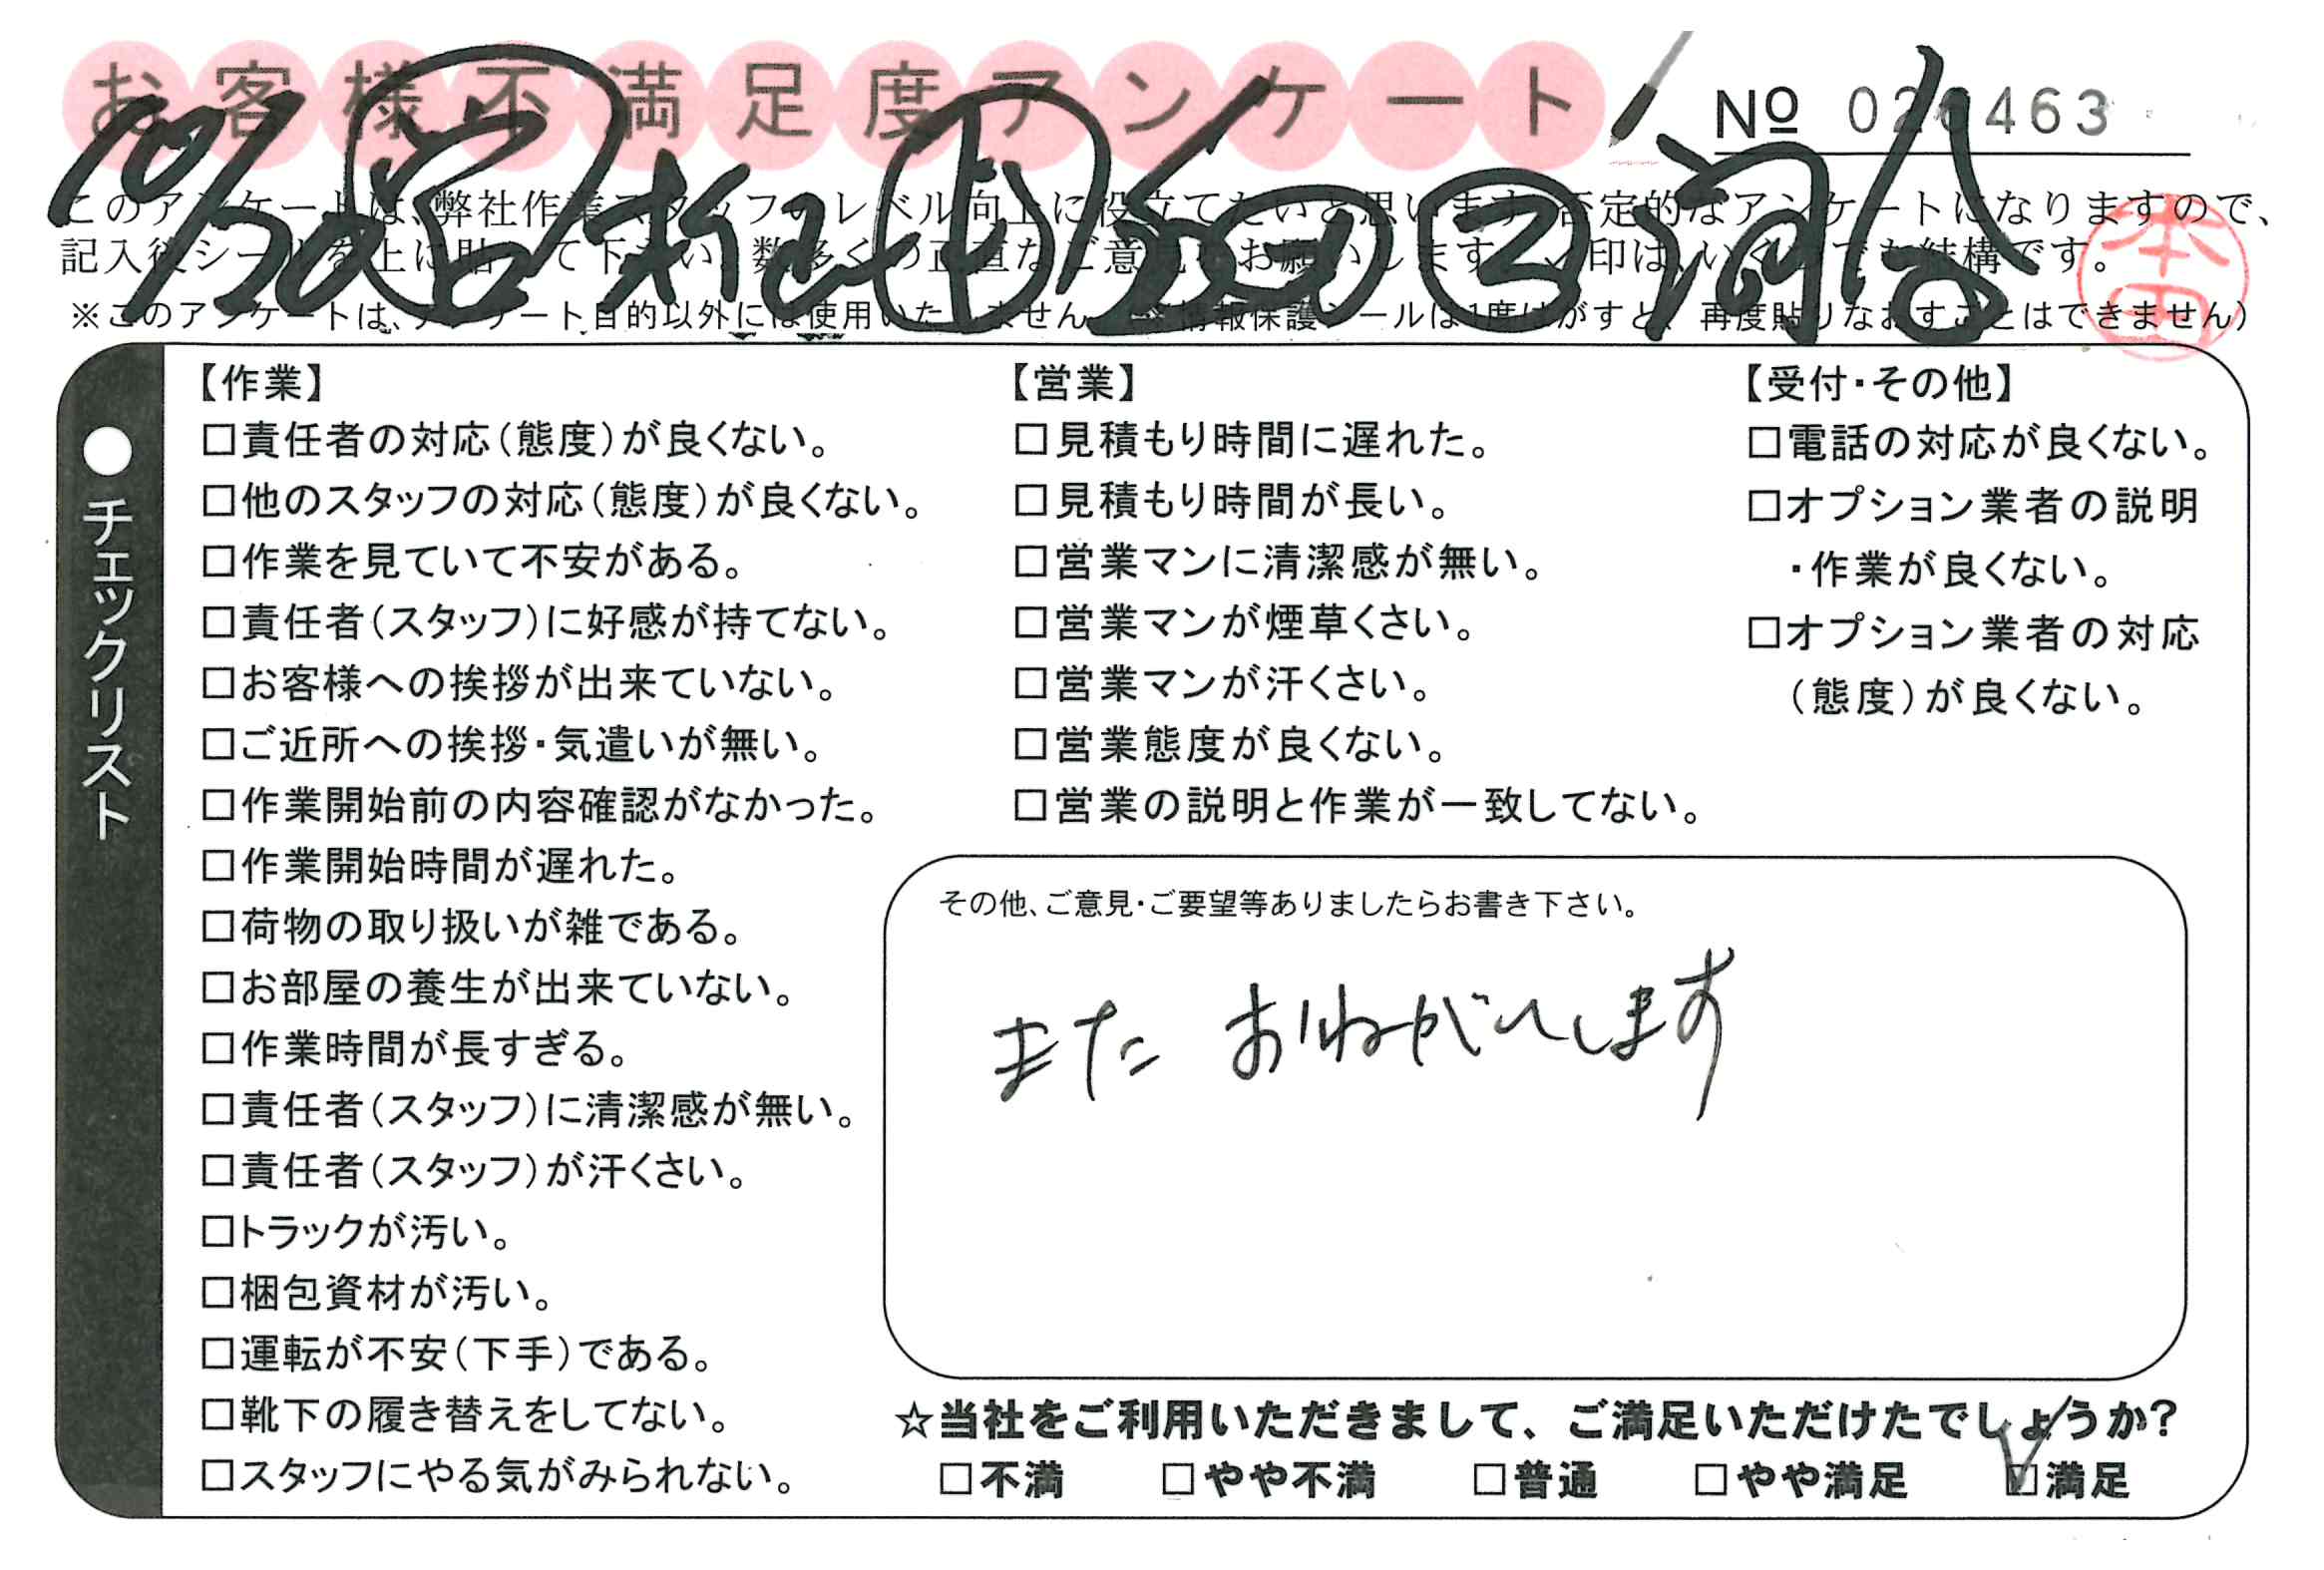 お客様不満足度アンケート
No 020463
このアンケートは、弊社作業スタッフのレベル向上に役立てたいと思います。否定的なアンケートになりますので、
記入後シールを上に貼って下さい。数多くの正直なご意見をお願いします。レ印は、いくつでも結構です。
※このアンケートは、アンケート目的以外には使用いたしません
シールは1度はがすと、再度貼りなおすことはできません)
10/20
本田
●チェックリスト
【作業】
□責任者の対応(態度)が良くない。
□他のスタッフの対応(態度)が良くない。
□作業を見ていて不安がある。
□責任者(スタッフ)に好感が持てない。
□お客様への挨拶が出来ていない。
□ご近所への挨拶・気遣いが無い。
□作業開始前の内容確認がなかった。
□作業開始時間が遅れた。
□荷物の取り扱いが雑である。
□お部屋の養生が出来ていない。
□作業時間が長すぎる。
□責任者(スタッフ)に清潔感が無い。
□責任者(スタッフ)が汗くさい。
□トラックが汚い。
□梱包資材が汚い。
□運転が不安(下手)である。
□靴下の履き替えをしてない。
□スタッフにやる気がみられない。
【営業】
□見積もり時間に遅れた。
□見積もり時間が長い。
□営業マンに清潔感が無い。
□営業マンが煙草くさい。
□営業マンが汗くさい。
□営業態度が良くない。
□営業の説明と作業が一致してない。
【受付・その他】
□電話の対応が良くない。
□オプション業者の説明
・作業が良くない。
□オプション業者の対応
(態度)が良くない。
その他、ご意見・ご要望等ありましたらお書き下さい。
また おねがいします
☆当社をご利用いただきまして、ご満足いただけたでしょうか?
□不満 □やや不満 □普通 □やや満足 ☑満足